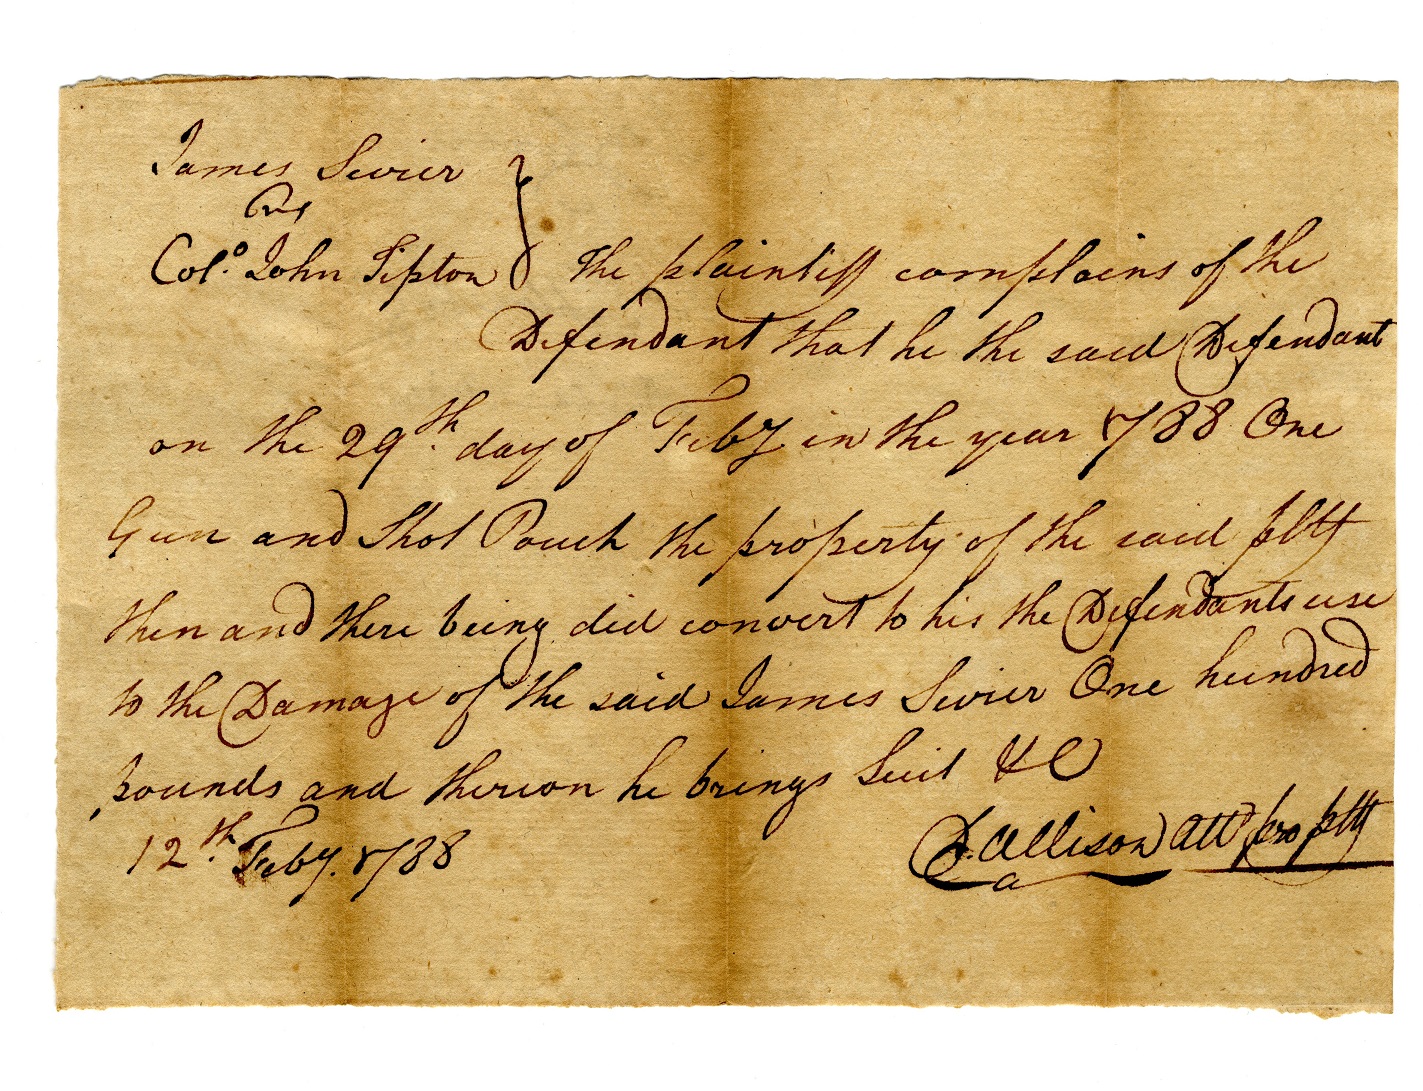 James Sevier
vs
Col.º John Tipton } the plaintiff complains of the
Defendant that he the said Defendant
on the 29th. day of Feby in the year 1788 One
Gun and Shot Pouch the property of the said pltff
then and there being did convert to his the Defendants use
to the Damage of the said James Sevier One hundred
pounds and thereon he brings Suit &C
12th. Feby. 1788
D. Allison Att pro pltff